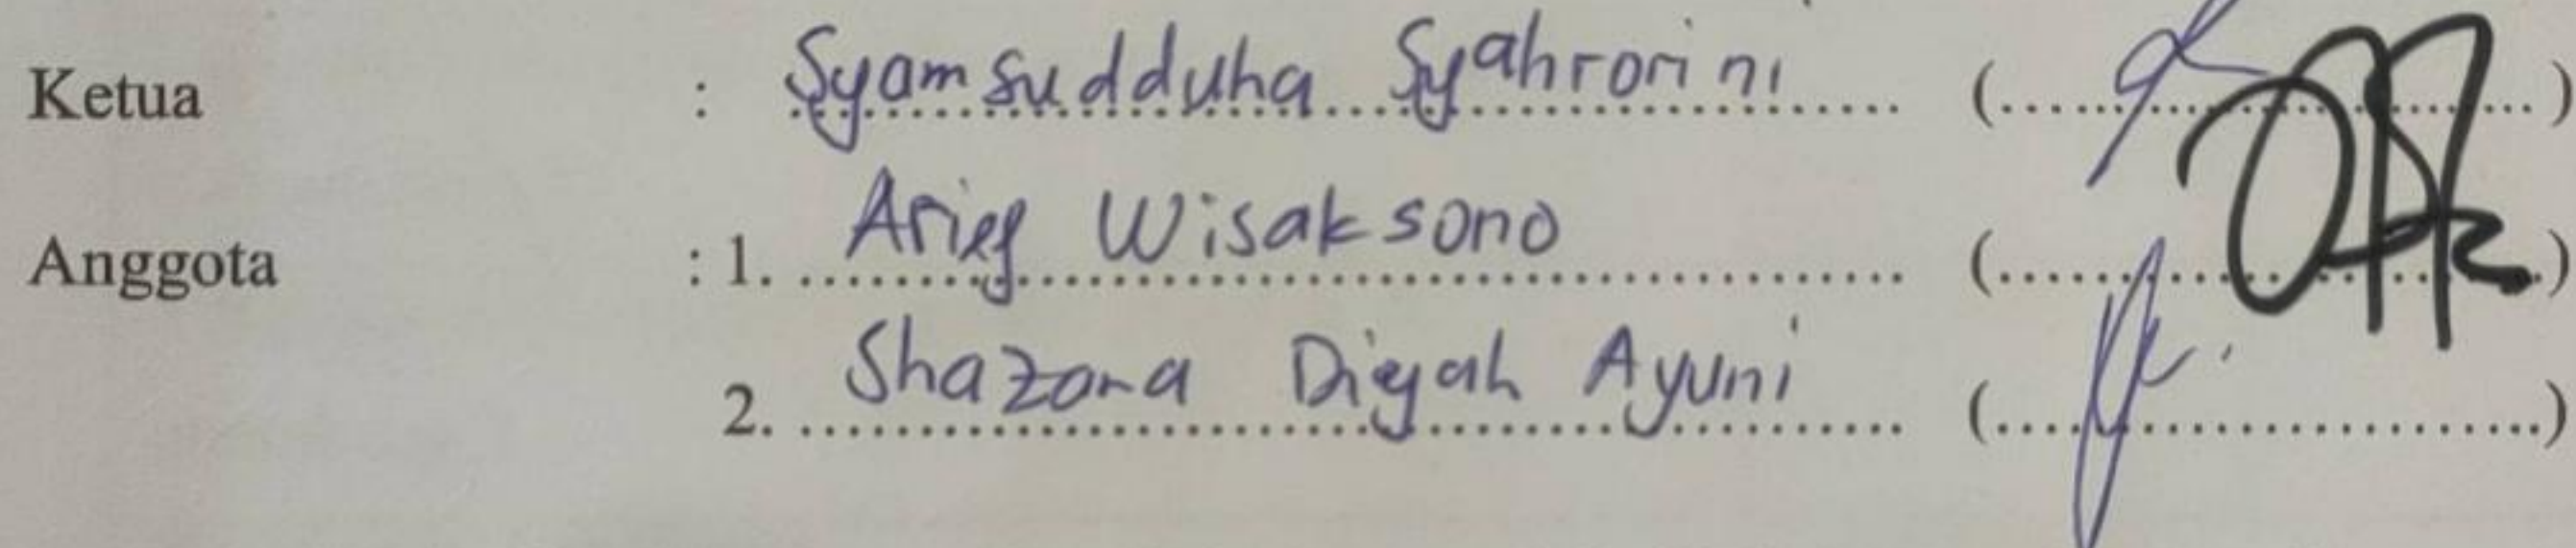 Ketua : Syamsudduha Syahrorini (....................)
Anggota : 1. Arief Wisaksono (....................)
2. Shazana Dhiyah Ayuni (....................)